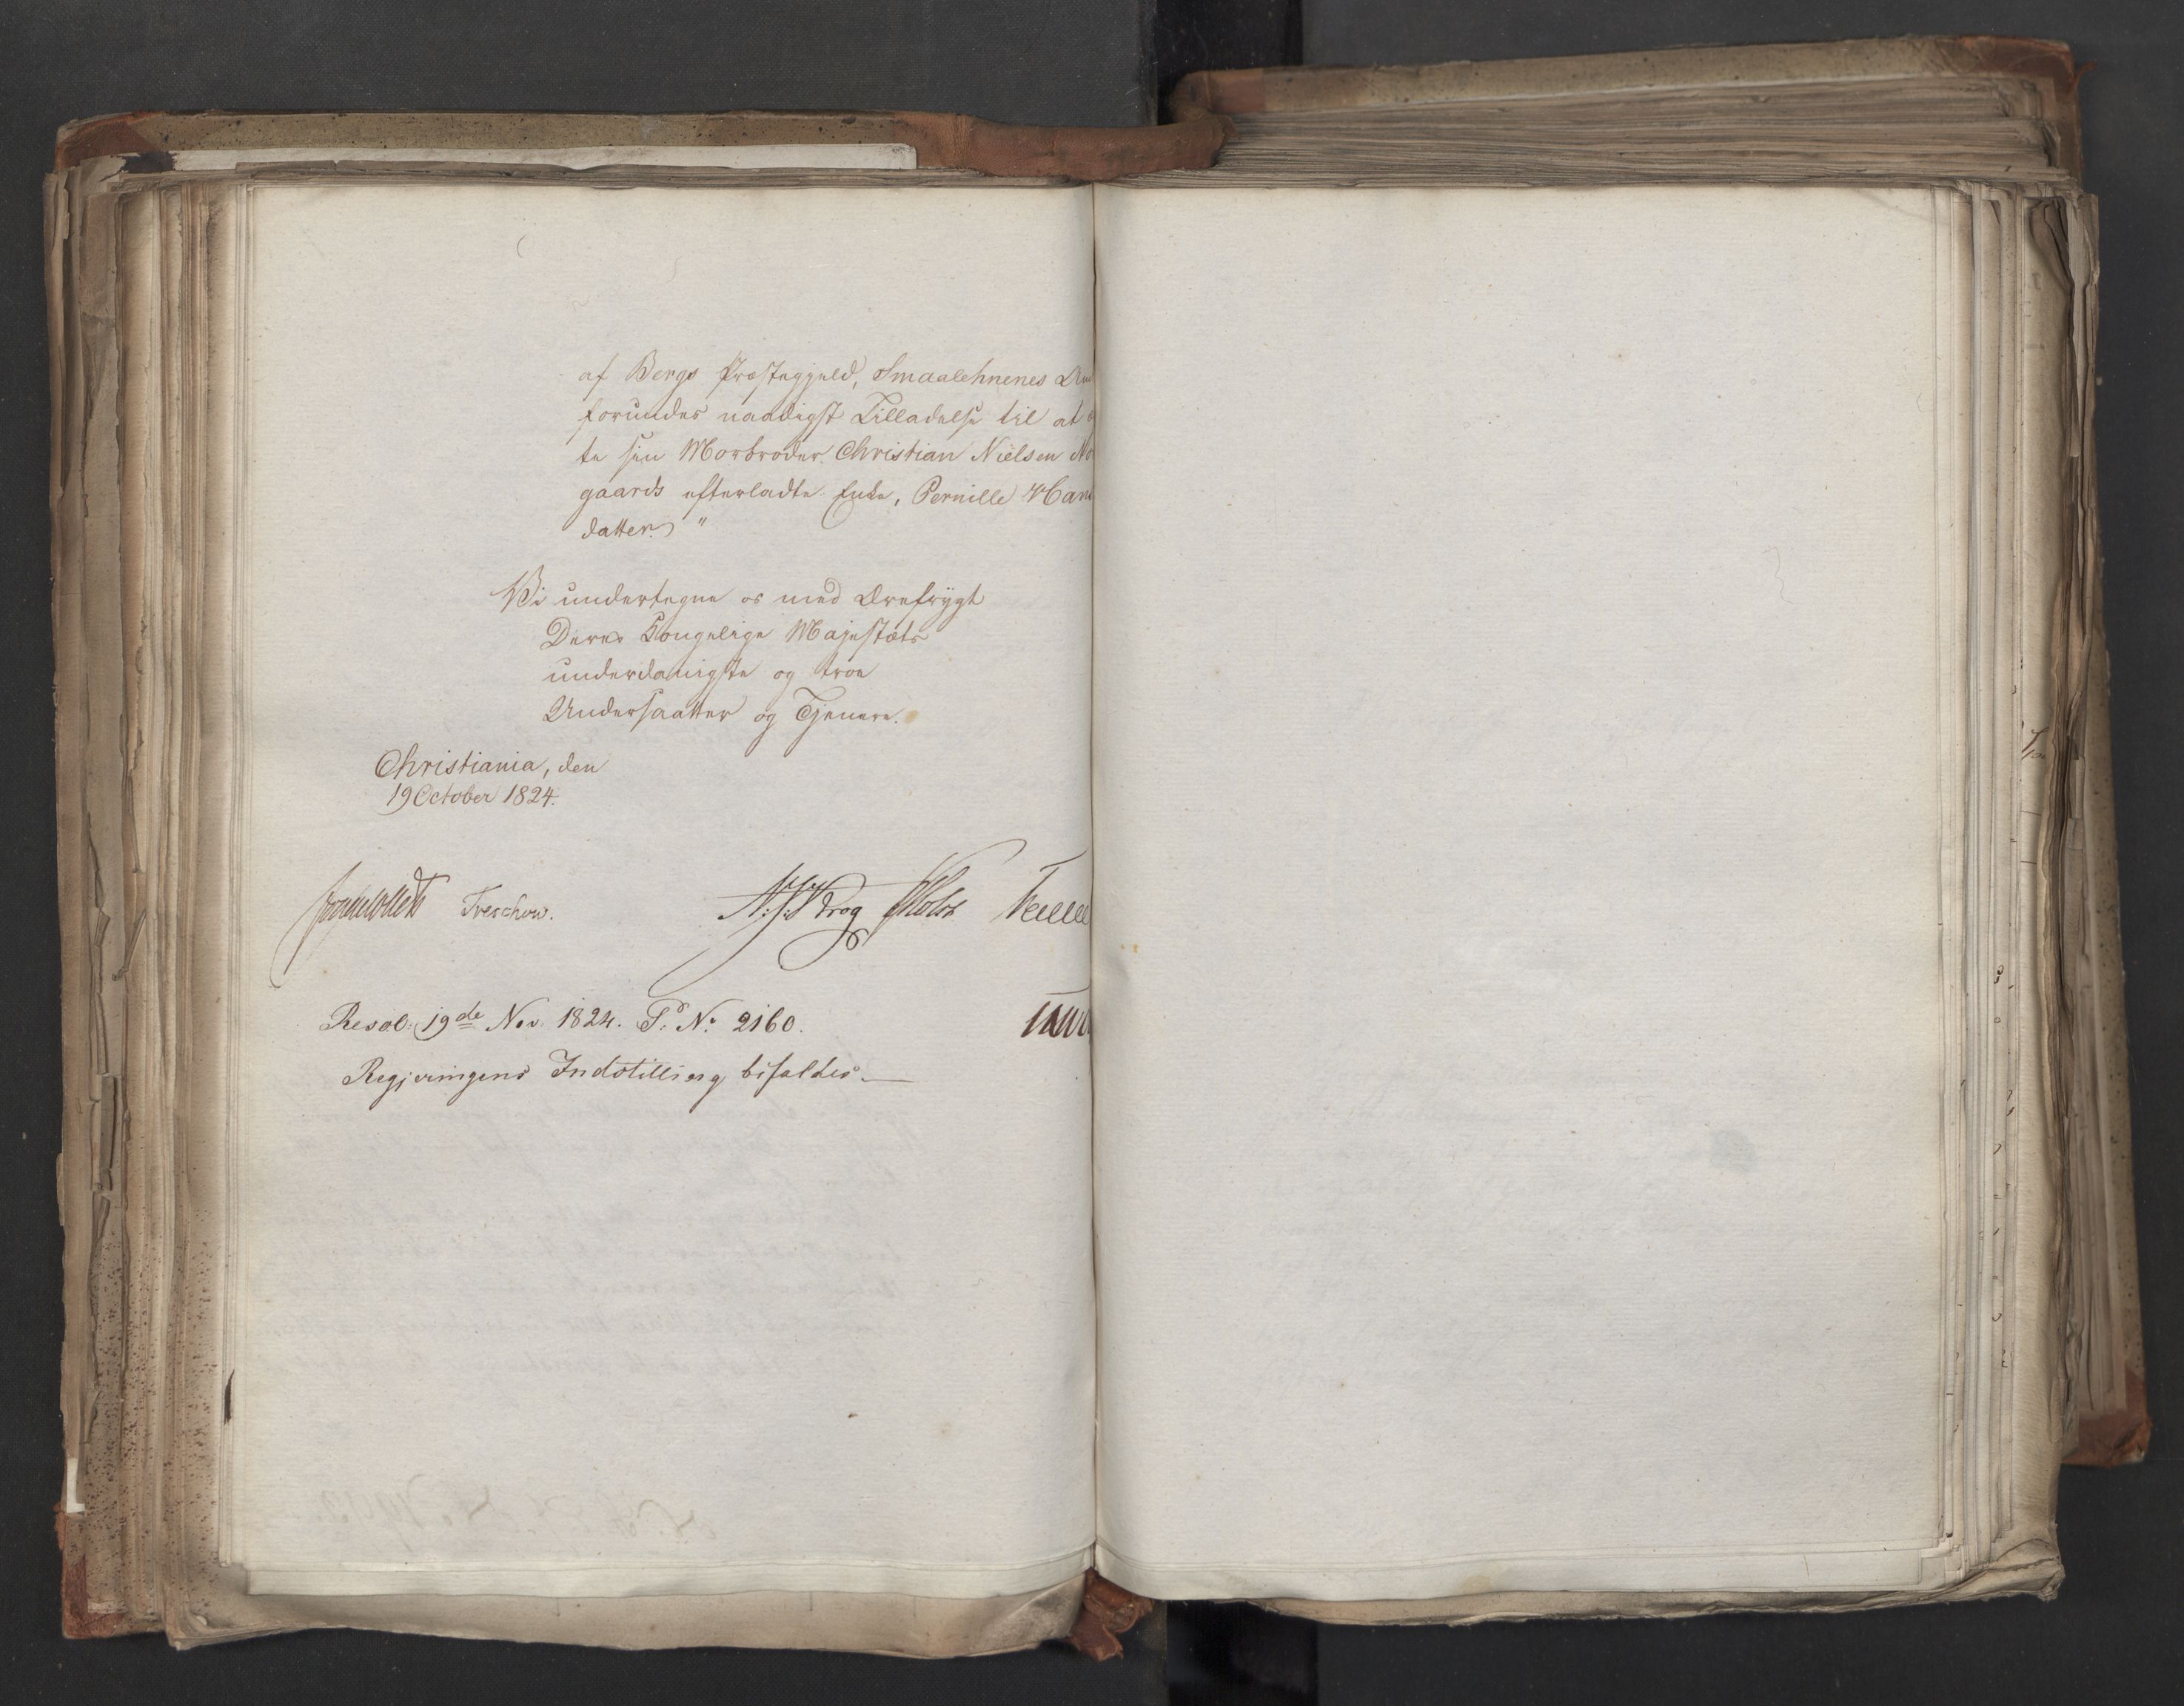 af Bergs Præstegjeld, Smaalehnenes
forundes naadigst Tilladelse til at
te sin Morbroder Christian Nielsen No
gaards efterladte Enke, Pernille Han
datter."
Vi undertegne os med Ærefrygt
Deres Kongelige Majestæts
underdanigste og troe
Undersaatter og Tjenere.
Christiania, den
19 October 1824.
Treschow. Krog Holst
Resol: 19de Nov. 1824. P. No 2160.
Regjeringens Indstilling bifaldes.